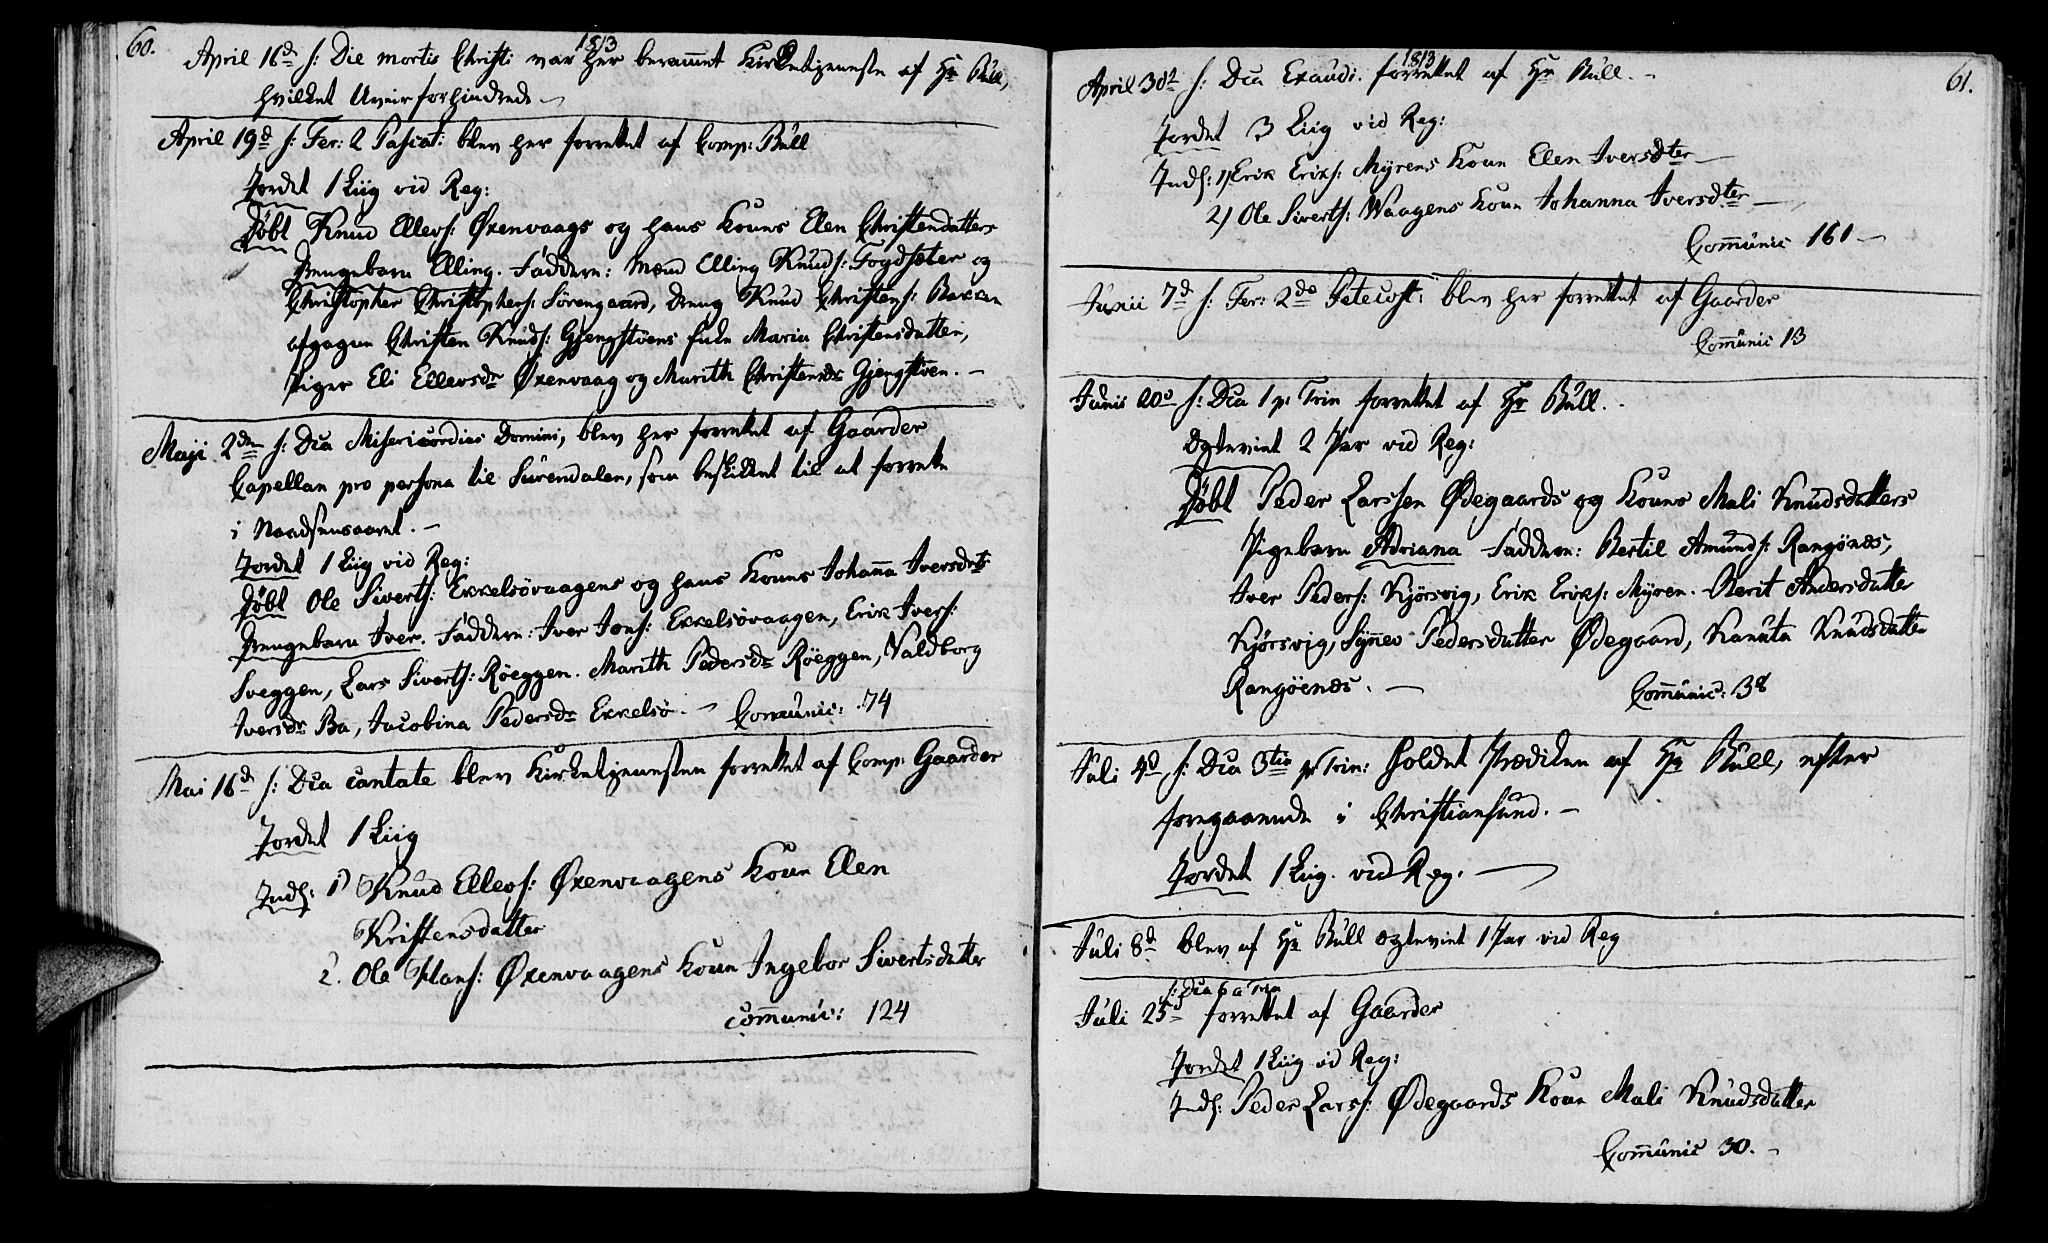 60.
1813
April 16d s: Die mortis Christi var her berammet Kirketjeneste af Hr Bull,
hvilket Uveir forhindrede —
April 19d s: Fer: 2 Pascat: blev her forrettet af Comp: Bull
Jordet 1 Liig vid Reg:
Döbt Knud Ellevs: Øxenvaags og hans Kones Elen Christensdatters
Drengebarn Elling. Faddere: Mænd Elling Knuds: Fogdsæter og
Christopher Christophers: Sörengaard, Dreng Knud Christens: Bakken
afgagne Christen Knuds: Gjengstöens Enke Maria Christensdatter,
Piger Eli Ellevsdr Øxenvaag og Marith Christensdr Gjengstöen. —
Maji 2den s: Dca Misericordias Domini, blev her forrettet af Gaarder
Capellan pro persona til Surendalen, som beskikket til at forrette
i Naadsensaaret. —
Jordet 1 Liig vid Reg:
Döbt Ole Siverts: Exkelsövaagens og hans Kones Johanna Iversdtrs
Drengebarn Iver. Faddere: Iver Jons: Exkelsövaagen, Erik Ivers:
Sveggen, Lars Siverts: Röeggen. Marith Pedersdr Röeggen, Valdborg
Iversdr Bæ, Jacobina Pedersdr Exkelsö. — Communic: 74
Mai 16d s: Dca cantate blev Kirketjenesten forrettet af Comp: Gaarder
Jordet 1 Liig
Inds: 1) Knud Ellevs: Øxenvaagens Kone Elen
Kristensdatter
2. Ole Hans: Øxenvaagens Kone Ingebor Sivertsdatter
communic: 124
61.
1813
April 30d s: Dca Exaudi. forrettet af Hr Bull. —
Jordet 3 Liig vid Reg:
Inds: 1) Erik Eriks: Myrens Kone Elen Iversdter —
2) Ole Siverts: Waagens Kone Johanna Iversdter —
Communic 161 —
Junii 7d s: Fer: 2da Petecost: blev her forrettet af Gaarder
Communic 13
Junii 20d s: Dca 1 p: Trin forrettet af Hr Bull. —
Ægteviet 2 Par vid Reg:
Döbt Peder Larssen Ødegaards og Kones Mali Knudsdatters
Pigebarn Adriana Faddere: Bertil Amunds: Rangönes,
Iver Peders: Kjörsvig, Erik Eriks: Myren. Berit Andersdatter
Kjörsvig, Synev Pedersdatter Ødegaard, Kanuta Knudsdatter
Rangöenes. — Communic: 38
Juli 4d s: Dca 3tia p Trin: holdet Prædiken af Hr Bull, efter
foregaaende i Christiansund. —
Jordet 1 Liig. vid Reg. —
Juli 8d blev af Hr Bull ægteviet 1 Par vid Reg
s: Dca 6 a Trin
Juli 25d forrettet af Gaarder
Jordet 1 Liig vid Reg:
Inds: Peder Lars: Ødegaards Kone Mali Knudsdatter
Communic 30. —